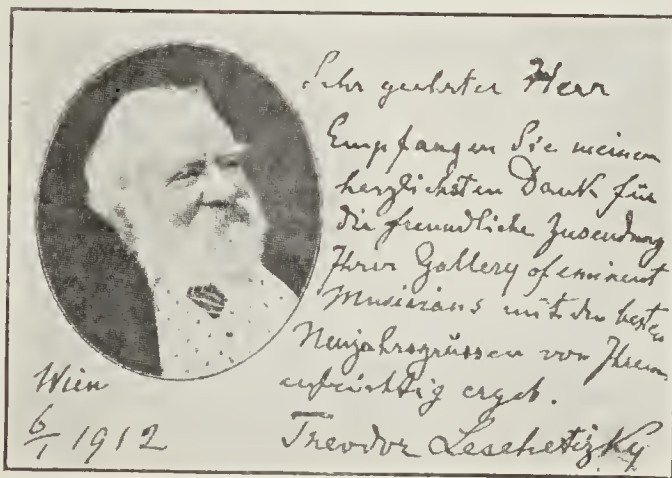 Sehr geehrter Herr
Empfangen Sie meinen
herzlichsten Dank für
die freundliche Zusendung
Ihrer Gallery of eminent
Musicians mit den besten
Neujahrsgrüssen von Ihrem
aufrichtig ergeb.
Theodor Leschetizky
Wien
6/1 1912